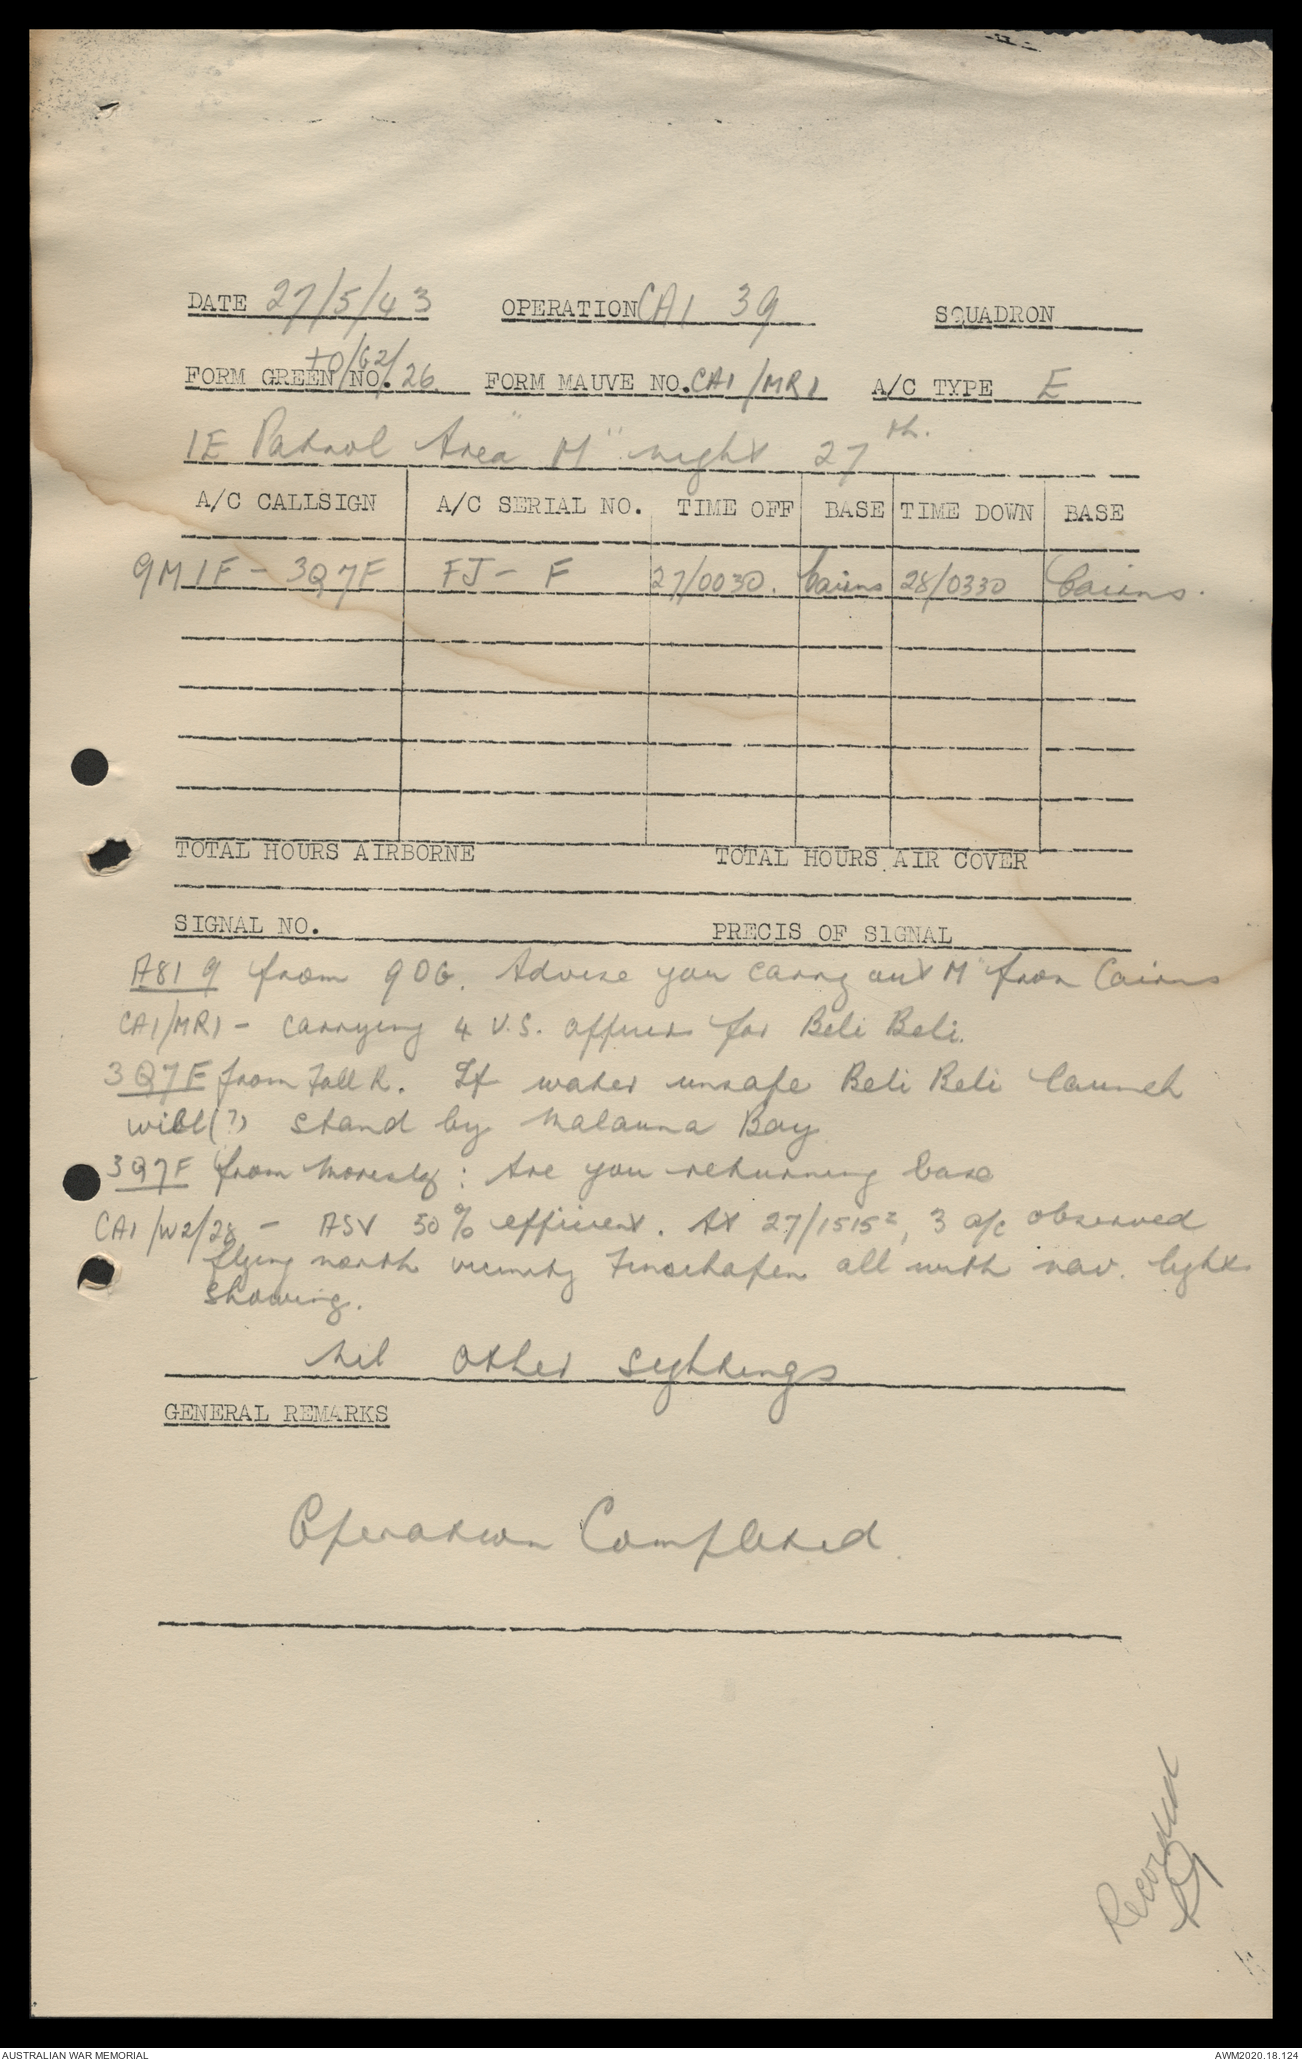 DATE 27/5/43 OPERATION CA1 39 SQUADRON
FORM GREEN NO. TO/G2/26 FORM MAUVE NO. CA1/MR1 A/C TYPE E
1E Patrol Area "M" night 27th.
A/C CALLSIGN A/C SERIAL NO. TIME OFF BASE TIME DOWN BASE
9M1F - 3Q7F FJ - F 27/0030. Cairns 28/0330 Cairns.
TOTAL HOURS AIRBORNE TOTAL HOURS AIR COVER
SIGNAL NO. PRECIS OF SIGNAL
A81 9 from 9OG. Advise you carry out "M" from Cairns
CA1/MR1 - carrying 4 U.S. officers for Beli Beli.
3Q7F from Fall R. If water unsafe Beli Beli launch
will(?) stand by Malauna Bay
3Q7F from Moresby: Are you returning base
CA1/W2/28 - ASV 50% efficient. At 27/1515z, 3 a/c observed
flying north vicinity Finschafen all with nav. lights
showing.
Nil other sightings
GENERAL REMARKS
Operation Completed.
Recorded
AUSTRALIAN WAR MEMORIAL AWM2020.18.124